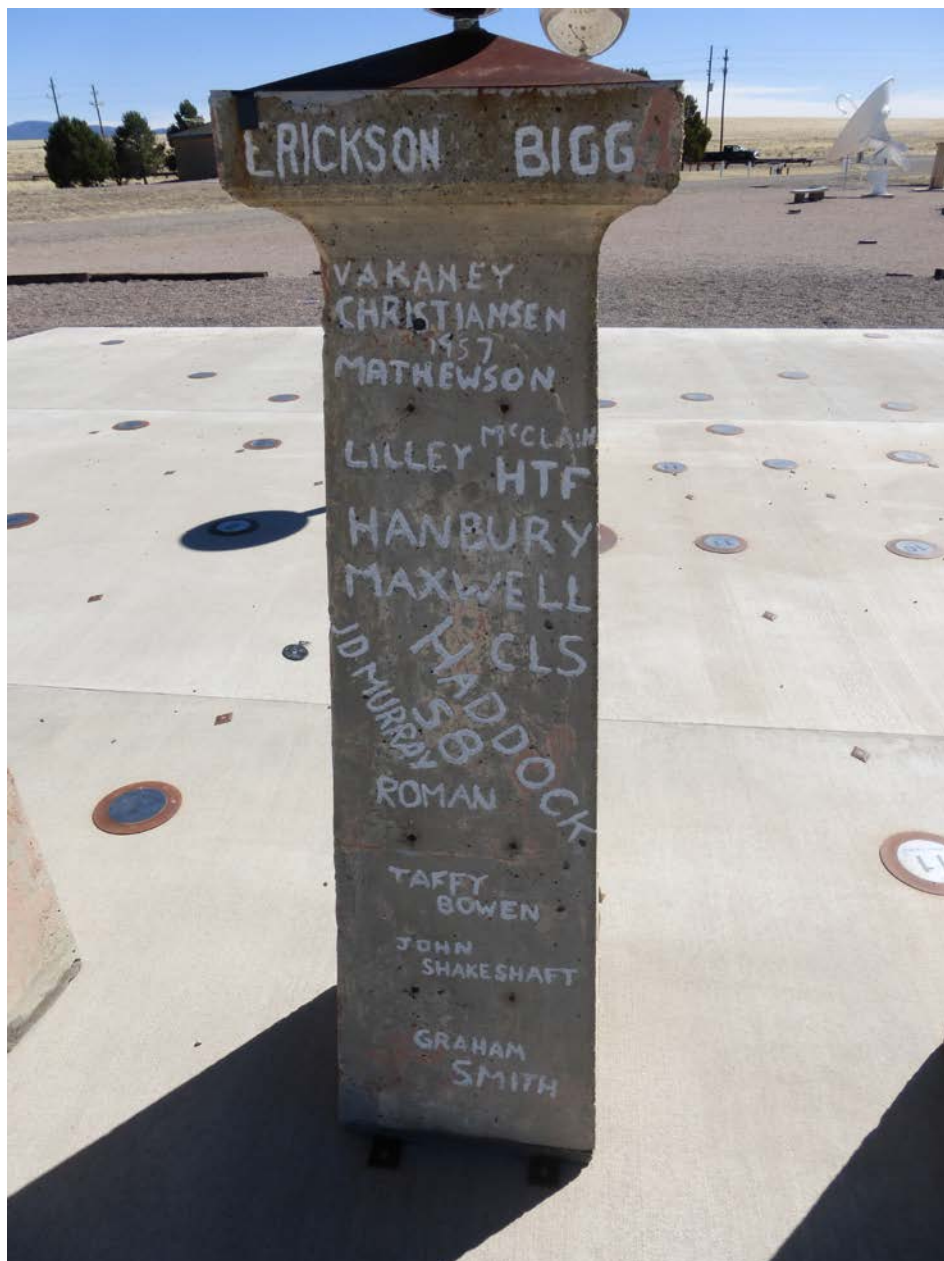 ERICKSON BIGG
VAKANEY
CHRISTIANSEN
1957
MATHEWSON
McCLAIN
LILLEY HTF
HANBURY
MAXWELL
HADDOCK
CLS
JD MURRAY
58
ROMAN
TAFFY
BOWEN
JOHN
SHAKESHAFT
GRAHAM
SMITH